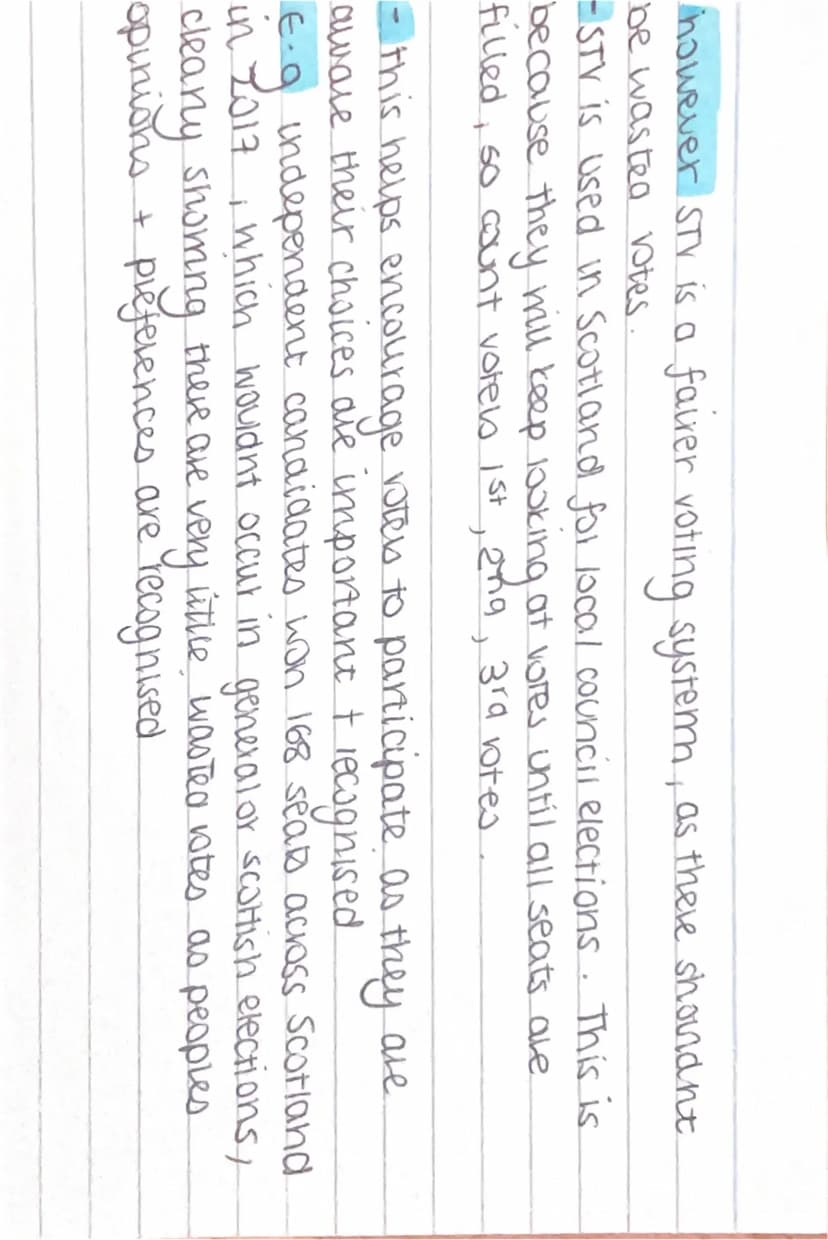 however STV is a fairer voting system, as there shouldnt
be wasted votes.
- STV is used in Scotland for local council elections. This is
because they will keep looking at votes until all seats are
filled, so count voters 1st, 2nd, 3rd votes.
- this helps encourage voters to participate as they are
aware their choices are important + recognised
E.g independent candidates won 168 seats across Scotland
in 2017, which wouldnt occur in general or scottish elections,
clearly showing there are very little wasted votes as peoples
opinions + preferences are recognised